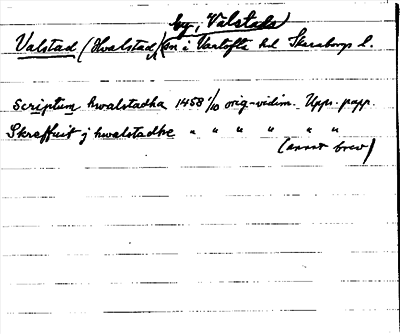 by, Valstads
Valstad (Hvalstad) sn i Vartofta hd Skaraborgs l.
Scriptum hwalstadha 1458 1/10 orig-vidim. Upps. papp.
Skreffuit j hwalstadhe " " " " " "
(annat brev)